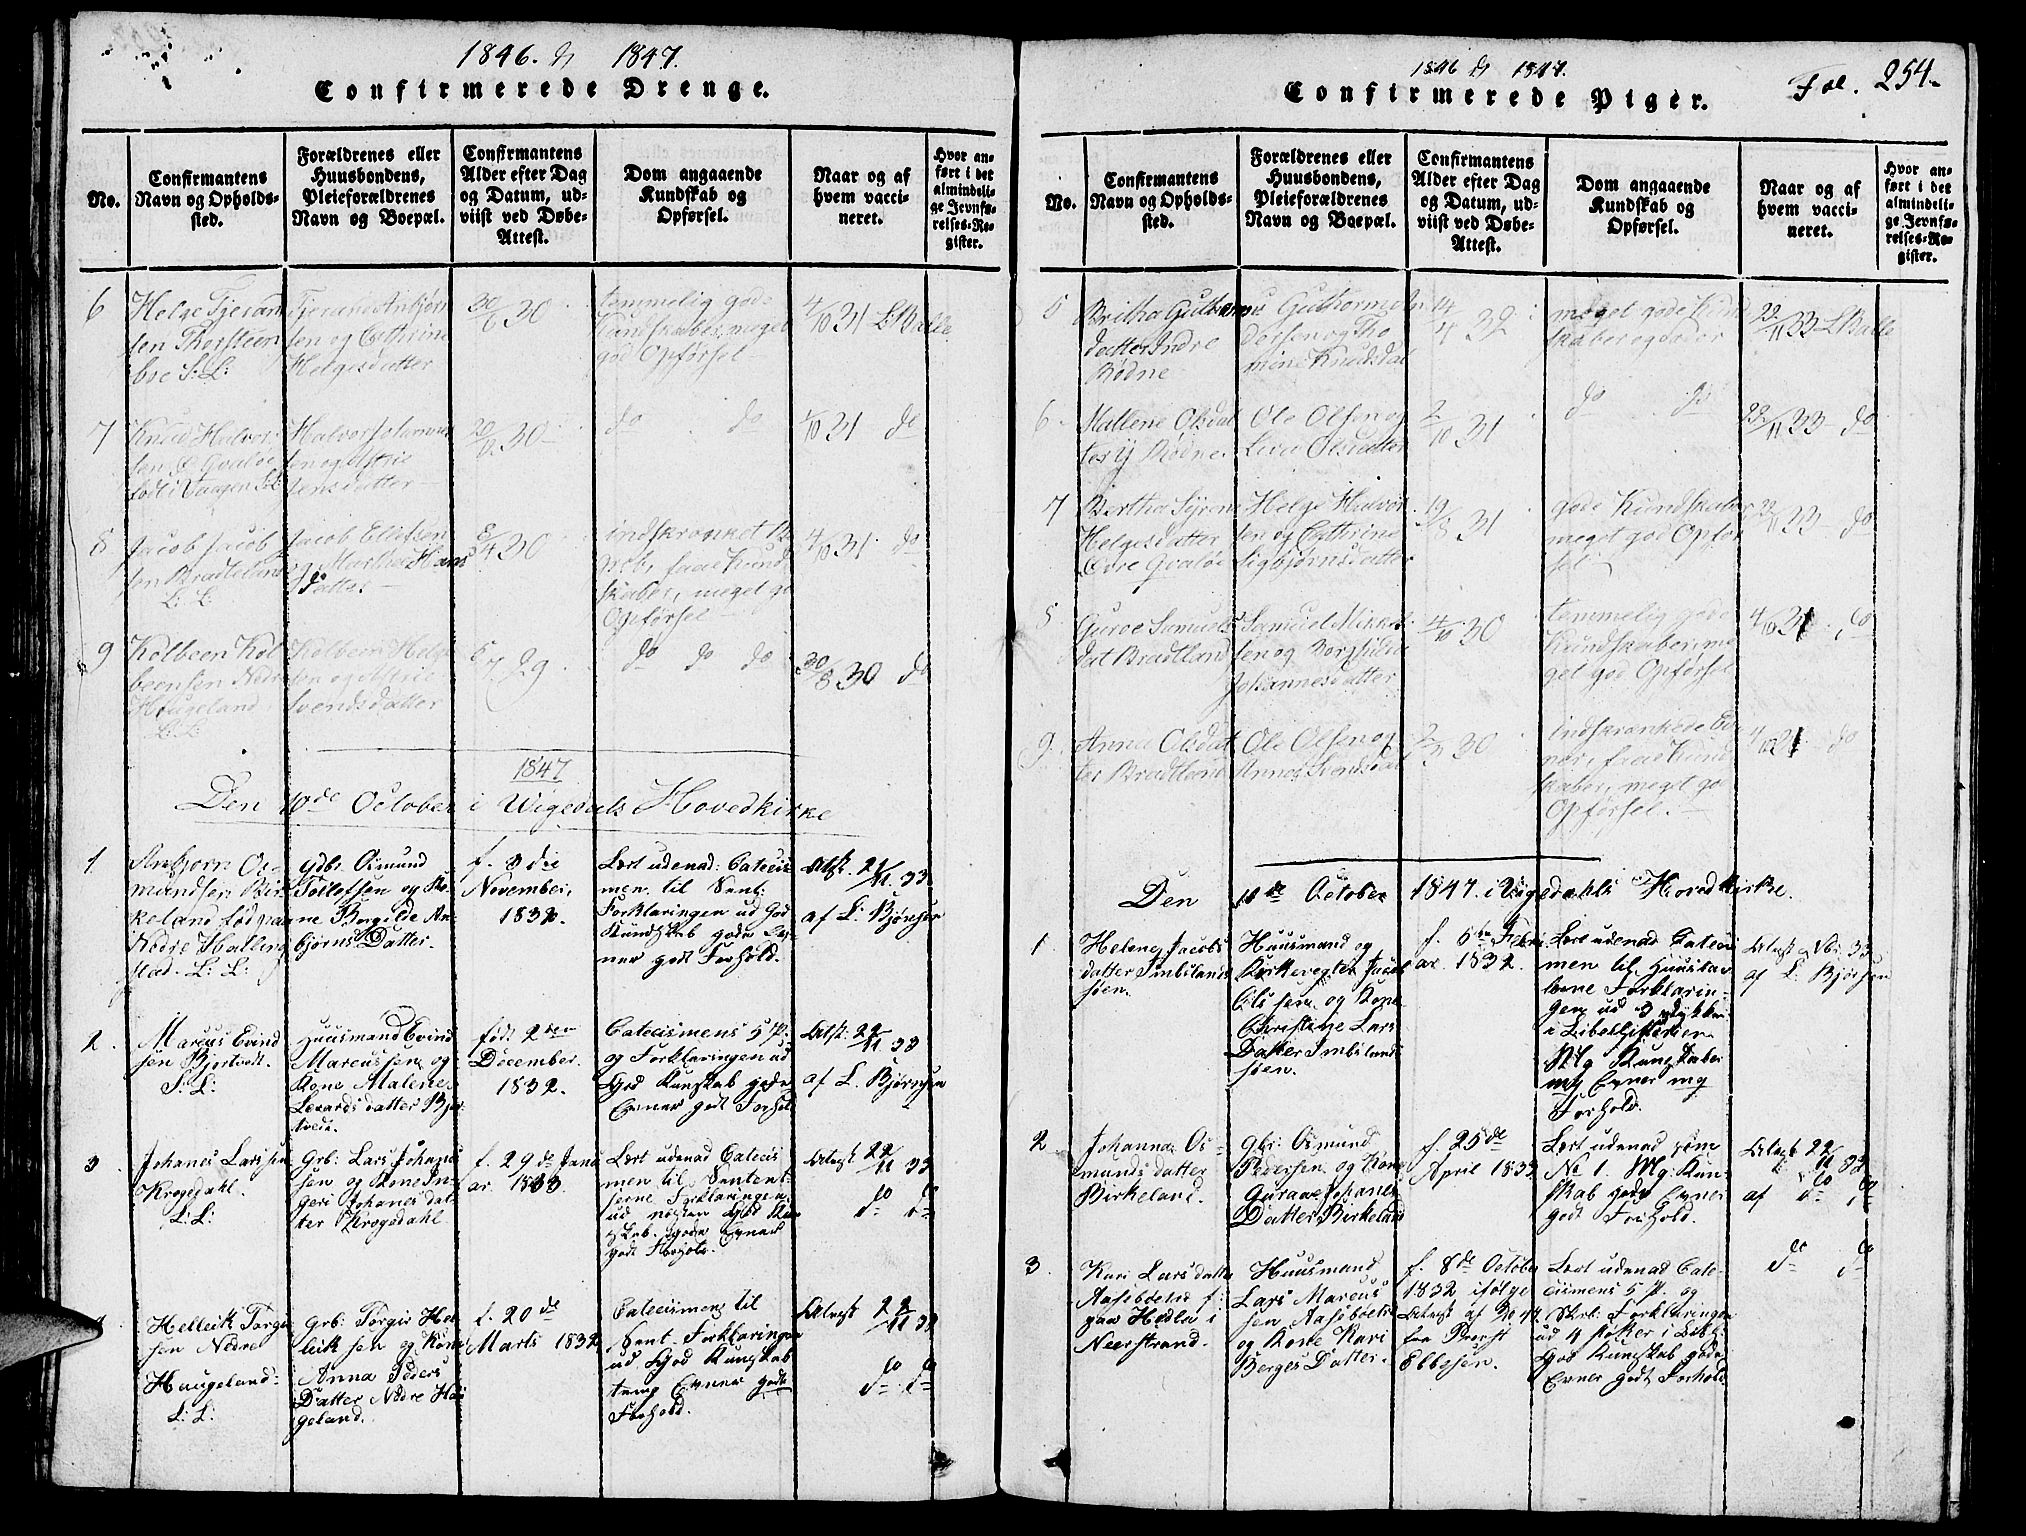 1846. & 1847.
Confirmerede Drenge.
No.
Confirmantens
Navn og Opholds-
sted.
Forældrenes eller
Huusbondens,
Pleieforældrenes
Navn og Boepæl.
Confirmantens
Alder efter Dag
og Datum, ud-
viist ved Døbe-
Attest.
Dom angaaende
Kundskab og
Opførsel.
Naar og af
hvem vacci-
neret.
Hvor an-
ført i det
almindeli-
ge Jevnfø-
relses-Re-
gister.
6
Helge Tjeran
sen Thorsteen
boe S: L:
Tjeran Anbjørn
sen og Cathrine
Helgesdatter
20/6 30
temmelig gode
Kundskaber, meget
god Opførsel
4/10 31 L Balle
7
Knud Halvor
sen Gvaløe
født i Vaagen S: L:
Halvor Johannes
sen og Astrie
Jensdatter
30
do do
1/10 31 do
8
Jacob Jacob
sen Bradteland
L: L:
Jacob Ellefsen
Martha Hans
Datter
8/4 30
indskrænket
faae Kund
skaber, meget go
Opførsel
4/10 31 do
9
Kolbeen Kol
beensen Nedre
Hougeland
L: L:
Kolbeen Helge
sen og Astrie
Svendsdatter
29
do do do
30/8 30 do
1847
Den 10de October i Wigedals Hovedkirke
1
Anbjørn Os-
mundsen Bir
keland født paa
Nedre Halling
stad. L: L:
Gdbr Osmund
Tollefsen og Ko-
ne Borgilde An-
bjørns Datter.
f. 3die
November,
1832.
Lært udenad Catecis
men til Sent:
Forklaringen ud God
Kundskab gode Ev-
ner godt Forhold.
Attst. 21/11 33
af L: Bjørnsen
2.
Marcus Evind
sen Bjortvedt.
S: L:
Huusmand Evind
Marcussen og
Kone Malene
Levards datter Bjor
tvedt.
født 2den
December.
1832.
Catecismens 5 P.
og Forklaringen ud
God Kunskab gode
Evner godt Forhold
Attst: 22/11 33
af L. Bjørnsen
3.
Johanes Larssen
Krogedahl.
L: L:
Grb: Lars Johanes
sen og Kone In-
geri Johanes dat-
ter Krogedahl
f. 29de Janu
ar. 1833
Lært udenad Catecis
men til Sentent-
serne Forklaringen
ud næsten God Kun
skab. gode Evner
godt Forhold.
Attest 22/11 33
do do
Helleik Torgir
sen Nedre
Haugeland
L: L:
Grb: Torgir Hel
leik sen og Kone
Anna Peders
Datter Nedre Hau
geland.
f. 20de
Marts 1832
Catecismen til
Sent. Forklaringen
ud God Kunskab
temp Evner godt
Forhold.
Attest 22/11 33
do do
1846 & 1847.
Confirmerede Piger.
Fol. 254.
No.
Confirmantens
Navn og Opholds-
sted.
Forældrenes eller
Huusbondens,
Pleieforældrenes
Navn og Boepæl.
Confirmantens
Alder efter Dag
og Datum, ud-
viist ved Døbe-
Attest.
Dom angaaende
Kundskab og
Opførsel.
Naar og af
hvem vacci-
neret.
Hvor an-
ført i det
almindeli-
ge Jevnfø-
relses-Re-
gister.
5
Britha Guthorms
datter Indre
Rødne
Guthorm
dersen og Tho
mine Knudsdat
14/4 32
meget gode Kund
skaber og do
22/11 33 L Balle
6
Mallene Olsdat
ter Y Rødne
Ole Olsen og
Liva Olsdatter
2/10 31
do do
22/11 33 do
7
Bertha Syrene
Helgesdatter
Øvre Gvaløe
Helge Halvor
sen og Cathrine
Sigbjørnsdatter
19/8 31
gode Kundskaber
meget god Opfør
sel
22/11 33 do
Guroe Samuels
dat Bradtland
Samuel Mikkel
sen og Borghilde
Johannesdatter
4/10 30
temmelig gode
Kundskaber, me
get god Opførsel
4/10 31 do
9.
Anna Olsdat
ter Bradtland
Ole Olsen og
Anne Svendsdat
30
indskrænkede Ev
ner, faae Kund
skaber, meget god
Opførsel.
do
Den 10de October 1847. i Vigedahls Hovedkirke.
1
Helene Jacobs
datter Imbslands
søen.
Huusmand og
Kirkevegter Jacob
Olssen og Kone
Christine Lars
Datter Imbslands
søen.
f. 6te Febru
ar. 1832.
Lært udenad Catecis
men til Huustav
lerne Forklarin-
gen ud 3 stykker
Mlg Kunskaber
mg Evner mg
Forhold.
Attest Nbr. 33
af L. Bjørnsen
2
Johanna Os-
munds datter
Birkeland.
Gbr: Osmund
Pedersen og Kone
Gurane Johanes
Datter Birkeland
f. 25de
April 1833
Lært udenad som
No 1. Mg: Kun-
skab gode Evner
godt Forhold.
Attest 22/11 33
af do do
3
Kari Lars datter
Aaseboeles f:
paa Hedla i
Neerstrand.
Huusmand
Lars Marcus
sen Aaseboele
og Kone Kari
Berges Datter.
f. 8de October
1832 ifølge
Attest af
fra Provst
Ebbesen.
Lært udenad Cate-
cismens 5 P. og
Forklaringen
ud 4 støker i
God Kunskab gode
Evner godt Forhold
do do